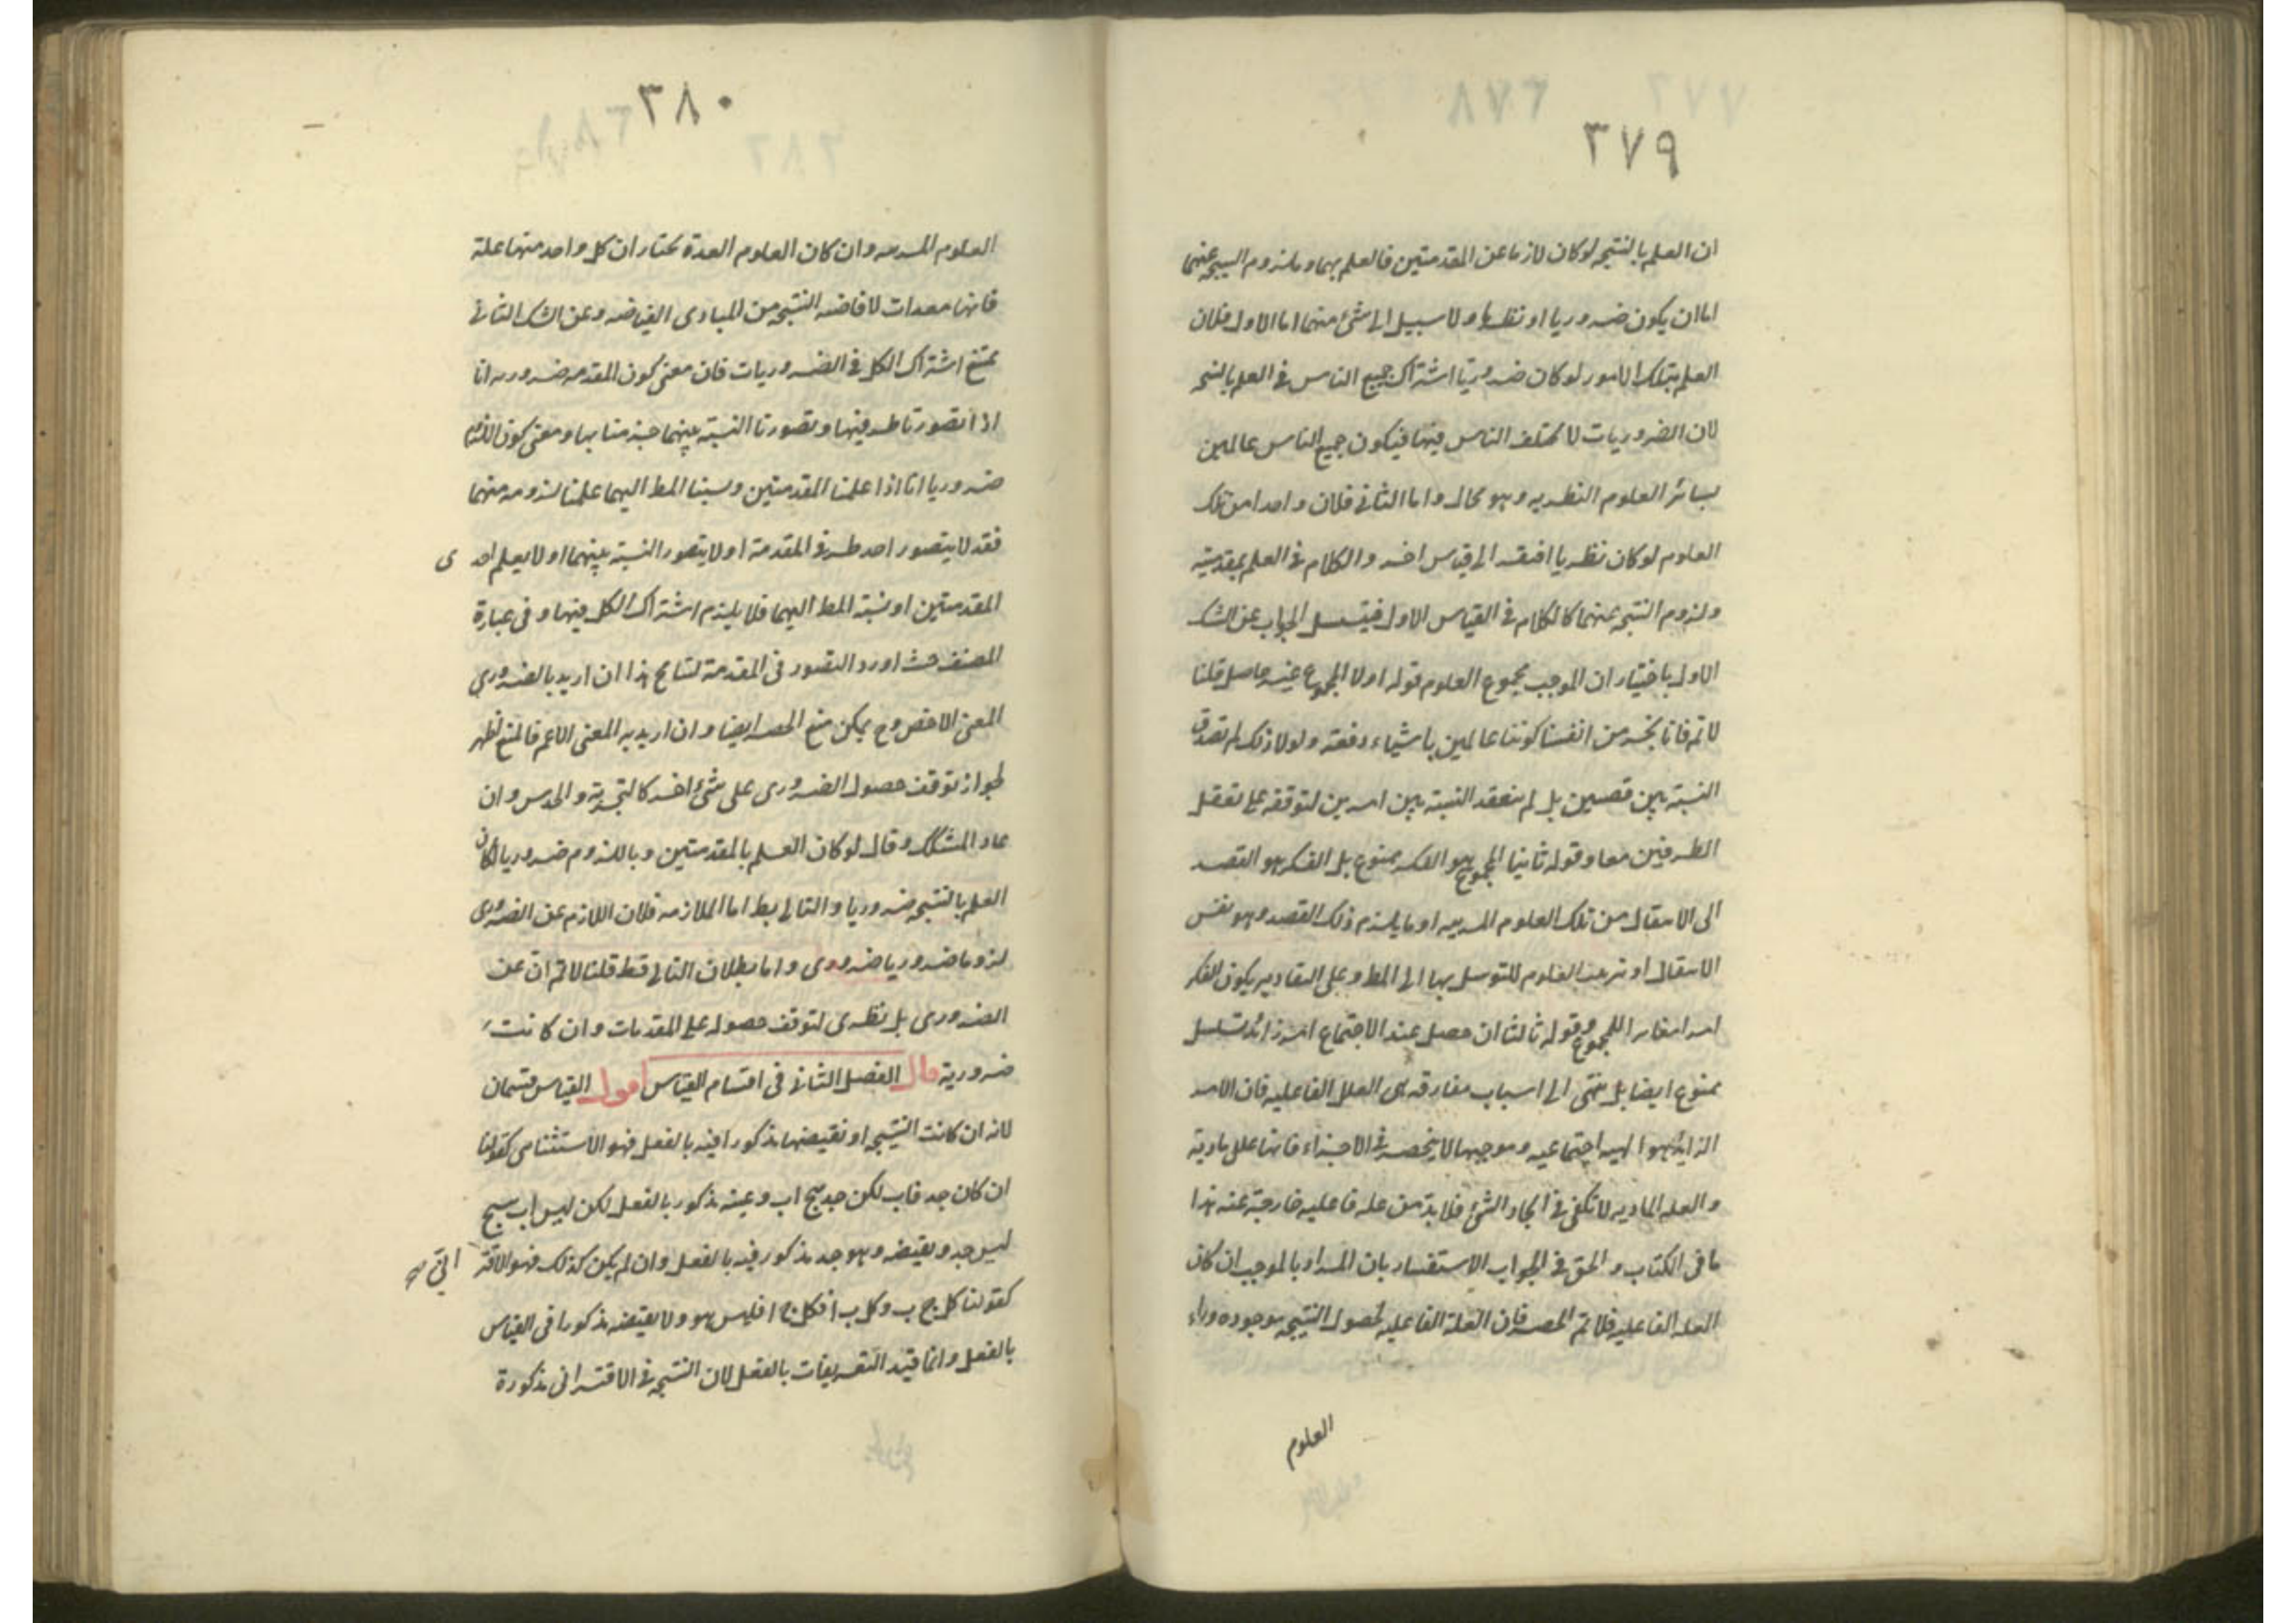 ٣٧٩
ان العلم بالنتيجه لو كان لازما عن المقدمتين فالعلم بهما وبلزوم النتيجه عنهما
اما ان يكون ضروريا او نظريا ولا سبيل الى شئ منهما اما الاول فلان
العلم بتلك الامور لو كان ضروريا اشتراك جميع الناس فى العلم بالنتيجه
لان الضروريات لا تختلف الناس فيها فيكون جميع الناس عالمين
بسائر العلوم النظريه وهو محال واما الثانى فلان واحدا من تلك
العلوم لو كان نظريا افتقر الى قياس اخر والكلام فى العلم بمقدمتيه
ولزوم النتيجه عنهما كالكلام فى القياس الاول فيتسلسل الجواب عن الشك
الاول باختيار ان الموجب مجموع العلوم قوله اولا المجموع غير حاصل قلنا
لا نم فانا نجد من انفسنا كوننا عالمين باشياء دفعة ولولا ذلك لم تصدق
النسبة بين قضيتين بل لم ينعقد النسبة بين امرين لتوقفه على تعقل
الطرفين معا وقوله ثانيا المجموع هو الفكر ممنوع بل الفكر هو القصد
الى الانتقال من تلك العلوم المرتبه او ما يلزم ذلك القصد وهو نفس
الانتقال او ترتيب العلوم للتوسل بها الى المط وعلى التقادير يكون الفكر
امرا مغايرا للمجموع وقوله ثالثا ان حصل عند الاجتماع امر زائد تسلسل
ممنوع ايضا بل ينتهى الى اسباب مفارقه هى العلل الفاعليه فان الامر
الزايد هو الهيه اجتماعيه وموجبها لا ينحصر فى الاجزاء فانها علل مادية
والعله الماديه لا تكفى فى ايجاد الشئ فلا بد من عله فاعليه خارجة عنه هذا
ما فى الكتاب والحق فى الجواب الاستفسار بان المراد بالموجب ان كان
العله الفاعليه فلا نم الحصر فان العلة الفاعليه لحصول النتيجه موجوده وراء
العلوم
٣٨٠
العلوم المرتبه وان كان العلوم المعدة نختار ان كل واحد منها علة
فانها معدات لافاضه النتيجه من المبادى الفياضه وعن الشك الثانى
بمنع اشتراك الكل فى الضروريات فان معنى كون المقدمه ضروريه انا
اذا تصورنا طرفيها وتصورنا النسبة بينهما جزمنا بها ومعنى كون اللزوم
ضروريا انا اذا علمنا المقدمتين ونسبنا المط اليهما علمنا لزومه منهما
فقد لا يتصور احد طرفى المقدمة او لا يتصور النسبة بينهما او لا يعلم احدى
المقدمتين او نسبة المط اليهما فلا يلزم اشتراك الكل فيها وفى عبارة
المصنف حيث اورد التصور فى المقدمة تسامح هذا ان اريد بالضرورى
المعنى الاخص وح يمكن منع الحصر ايضا وان اريد به المعنى الاعم فالمنع اظهر
لجواز توقف حصول الضرورى على شئ اخر كالتجربة والحدس وان
عاد المشكك وقال لو كان العلم بالمقدمتين وباللزوم ضروريا لكان
العلم بالنتيجه ضروريا والتالى بط اما الملازمه فلان اللازم عن الضرورى
لزوما ضروريا ضرورى واما بطلان التالى فظ قلنا لا نم ان عن
الضرورى بل نظرى لتوقف حصوله على المقدمات وان كانت
ضرورية قال الفصل الثانى فى اقسام القياس اقول القياس قسمان
لانه ان كانت النتيجه او نقيضها مذكورا فيه بالفعل فهو الاستثنائى كقولنا
ان كان جد فاب لكن جد ينتج اب وعينه مذكور بالفعل لكن ليس اب ينتج
ليس جد ونقيضه وهو جد مذكور فيه بالفعل وان لم يكن كذلك فهو الاقترانى صح
كقولنا كل ج ب وكل ب ا فكل ج ا فليس هو ولا نقيضه مذكورا فى القياس
بالفعل وانما قيد التعريفات بالفعل لان النتيجه فى الاقترانى مذكورة